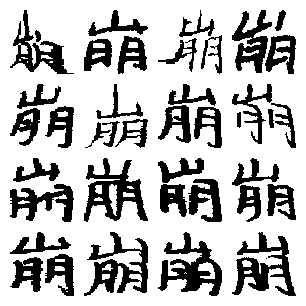 崩崩崩崩
崩崩崩崩
崩崩崩崩
崩崩崩崩